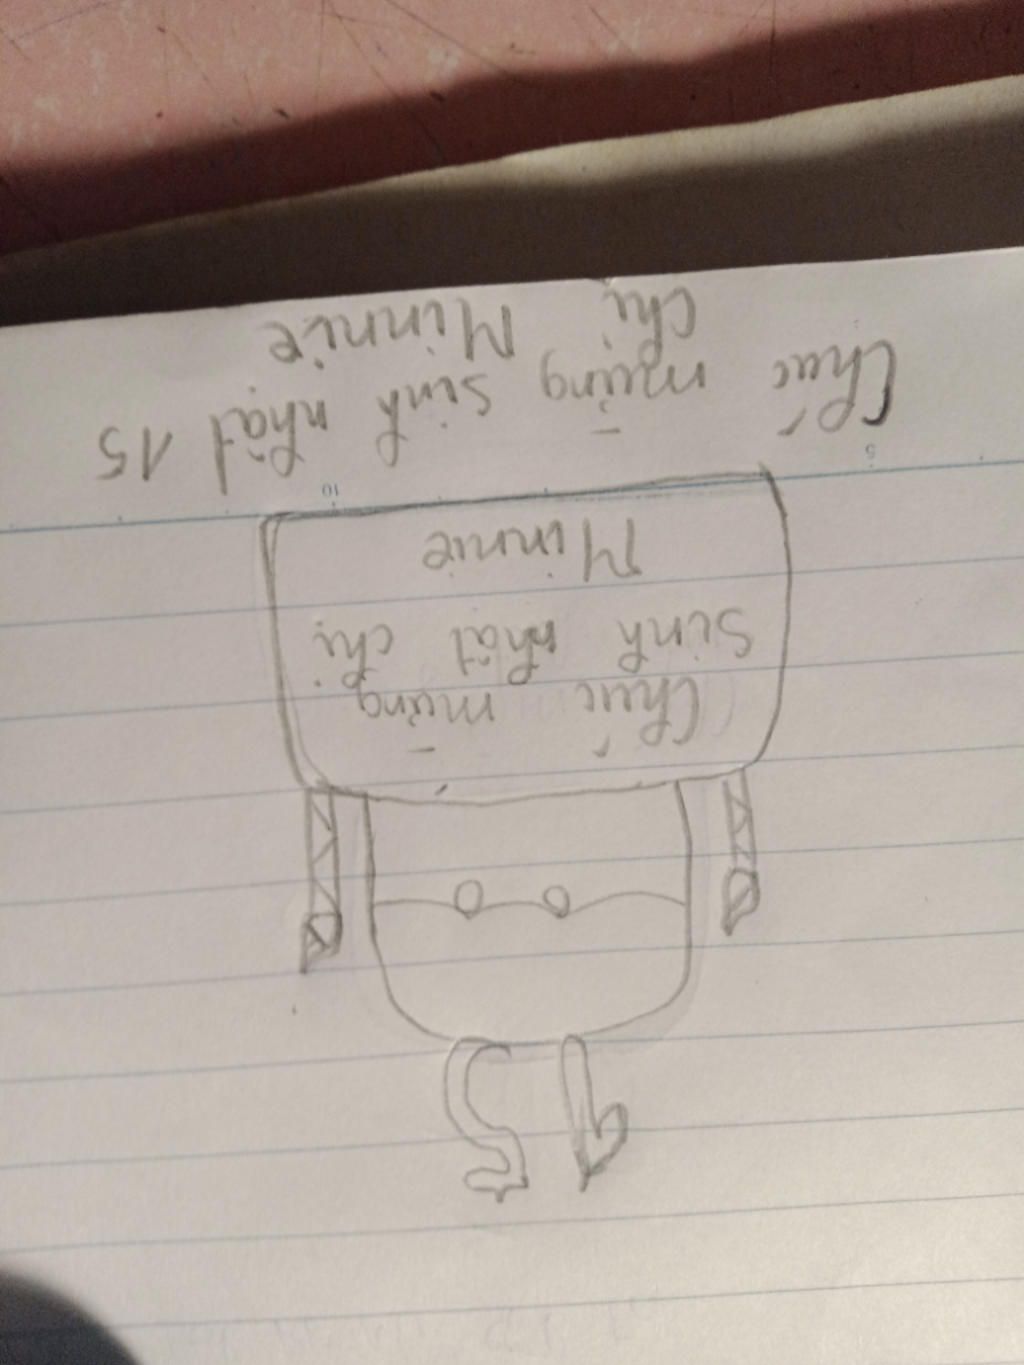 15
Chúc mừng
sinh nhật chị
Minnie
10
5
Chúc mừng sinh nhật 15
chị Minnie